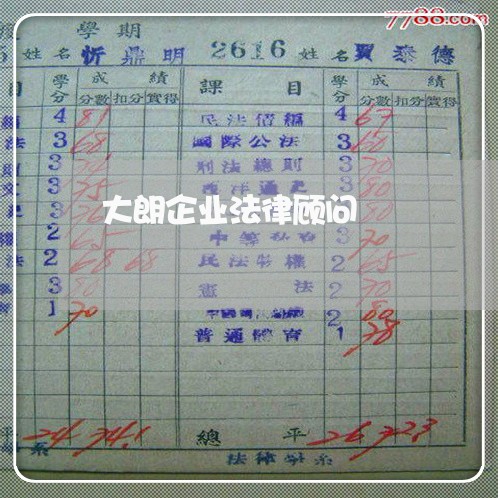 7788.com
學期
姓名 忻鼎明 2616 姓名 賈泰德
目 學分 成績 課目 學分 成績
分數 扣分 實得 分數 扣分 實得
4 81 民法債編 4 67
法 3 68 國際公法 3 60
3 刑法總則 3 70
3 75 西洋通史 3 80
大朗企业法律顾问
2 65 3 70
法 2 68 68 民法物權 2 65
3 80 憲法 2 70
1 70 2 80
普通體育 1 78
平 24 74.1 總平 26 72.3
系 法律學系